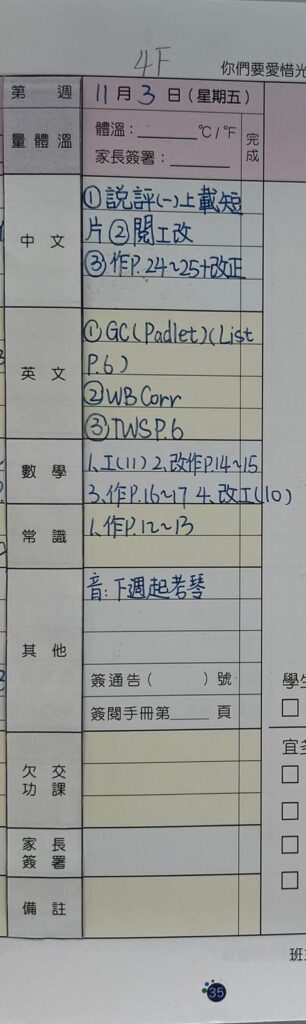 4F
你們要愛惜光
第 週
11月3日(星期五)
量體溫
體溫：______℃/℉
家長簽署：______
完成
中文
①説評(一)上載短
片②閱工改
③作P.24~25+改正
英文
①GC(Padlet)(List
P.6)
②WB Corr
③TWS P.6
數學
1.工(11) 2.改作P.14~15
3.作P.16~17 4.改工(10)
常識
1.作P.12~13
其他
音:下週起考琴
簽通告( )號
簽閱手冊第____頁
欠交功課
家長簽署
備註
學生
宜多
班
35